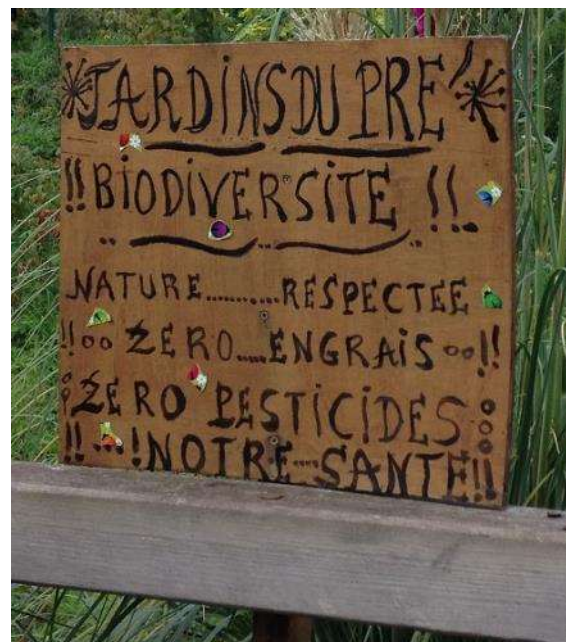 JARDINS DU PRE'
!! BIODIVERSITE !!
NATURE..........RESPECTEE
!! oo ZERO.....ENGRAIS oo !!
ZERO PESTICIDES
!! ...! NOTRE....SANTE !!